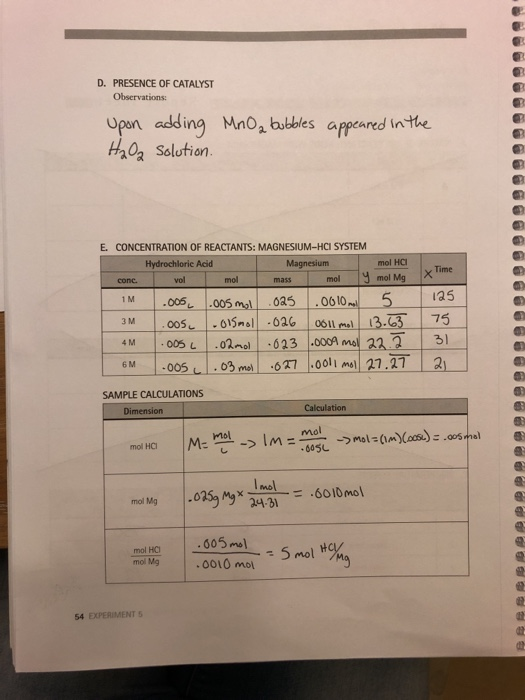 D. PRESENCE OF CATALYST
Observations:
Upon adding MnO₂ bubbles appeared in the
H₂O₂ Solution.
E. CONCENTRATION OF REACTANTS: MAGNESIUM–HCl SYSTEM
Hydrochloric Acid Magnesium mol HCl Time
conc. vol mol mass mol y mol Mg X
1 M .005L .005 mol .025 .0010 mol 5 125
3 M .005L .015mol .026 0011 mol 13.63 75
4 M .005 L .02mol .023 .0009 mol 22.2 31
6 M .005 L .03 mol .027 .0011 mol 27.27 21
SAMPLE CALCULATIONS
Dimension Calculation
mol HCl M= mol/L -> 1M = mol/.005L -> mol=(1M)(.005L) = .005mol
mol Mg .025g Mg x 1mol/24.31 = .0010mol
mol HCl .005mol
mol Mg .0010 mol = 5 mol HCl/Mg
54 EXPERIMENT 5